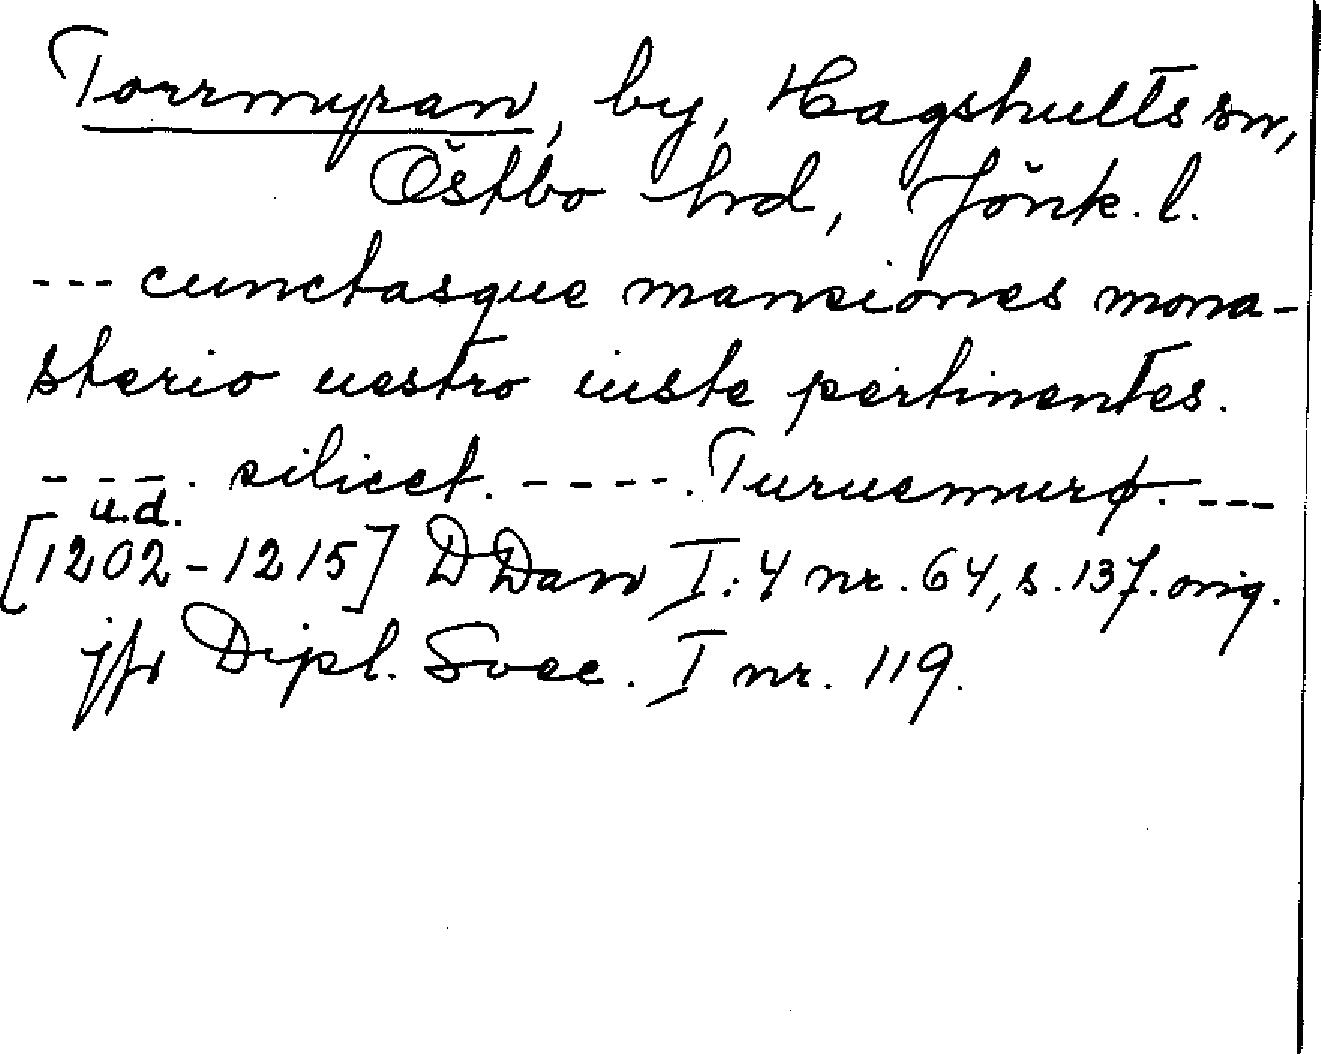 Torrmyran, by, Hagshults sn,
Östbo hrd, Jönk. l.
--- cunctasque mansiones mona-
sterio uestro iuste pertinentes.
----. silicet. ----. Turuemurø. ---
u.d.
[1202-1215] DDan I:4 nr. 64, s. 137. orig.
jfr Dipl. Svec. I nr. 119.